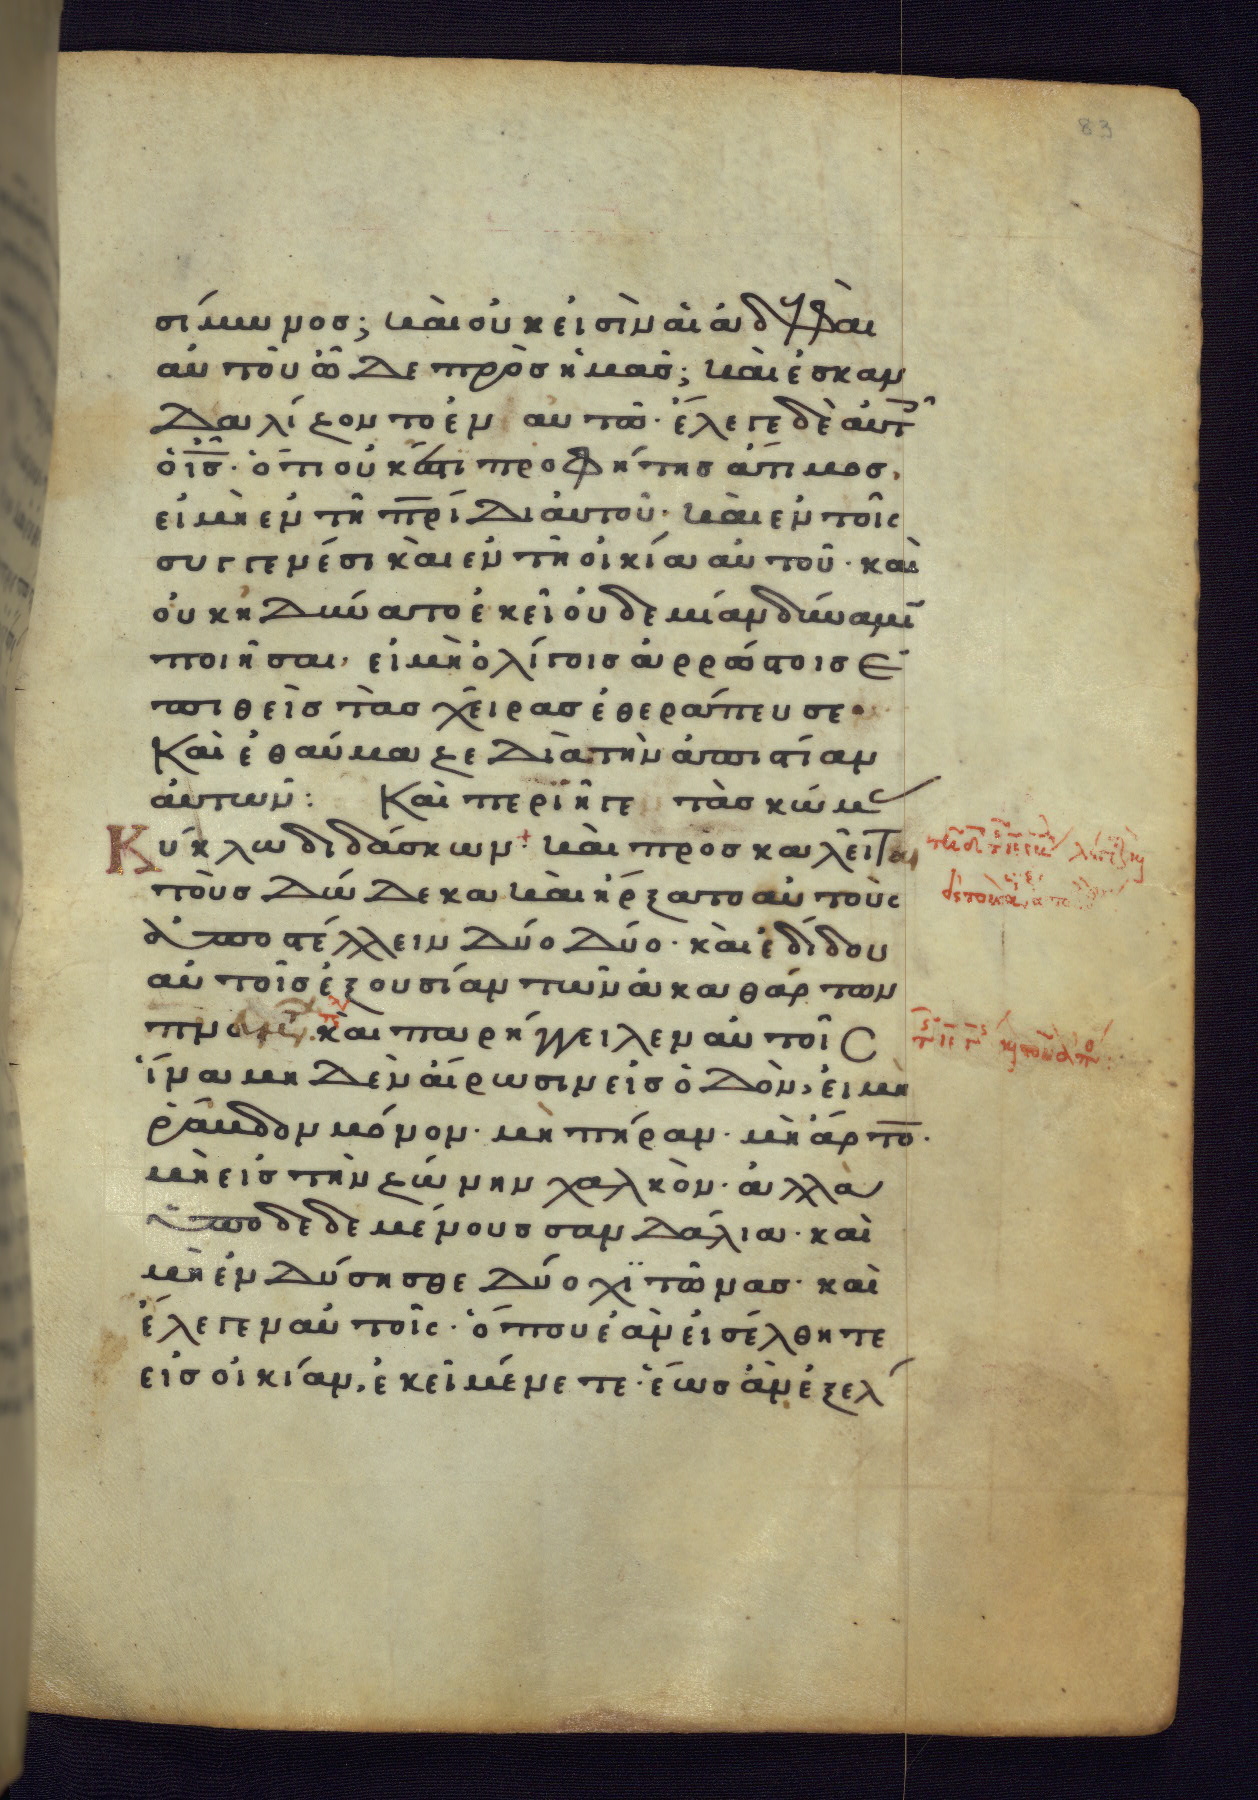 83
σίμωνος; και ουκ εισὶν αἱ ἀδελφαὶ
αὐτοῦ ὧδε πρὸς ἡμᾶς; και ἐσκαν
δαλίζοντο ἐν αυτῶ· ἔλεγε δὲ αὐτ
ὁ ις̅· ὅτι οὐκ ἔστι προφήτης ἄτιμος,
εἰ μὴ ἐν τῆ πρ̅ίδι ἀυτοῦ· και ἐν τοῖς
συγγενέσι καὶ ἐν τῆ οἰκία αὐτοῦ· καὶ
ὀυκ ἠδύνατο ἐκεῖ οὐδεμίαν δύναμῖ
ποιῆσαι, εἰ μὴ ὀλίγοις ἀρρώστοις ἐ
πιθεὶς τὰς χεῖρας ἐθεράπευσε·
Καὶ ἐθαύμαζε διὰ τὴν ἀπιστίαν
ἀυτῶν: Καὶ περιῆγε τὰς κώμ
Κύκλω διδάσκων+ και προσκαλεῖται
τοὺς δώδεκα και ἤρξατο αὐτοὺς
ἀποστέλλειν δύο δύο· καὶ ἐδίδου
αὐτοῖς ἐξουσίαν τῶν ἀκαθάρτων
πν . καὶ παρήγγειλεν αὐτοῖς
ἵνα μηδὲν αἴρωσιν εἰς ὁδὸν, εἰ μὴ
ῥάβδον μόνον· μὴ πήραν· μὴ ἄρτο̅·
μὴ εἰς τὴν ζώνην χαλκὸν· ἀλλὰ
ὑποδεδεμένους σανδάλια· καὶ
μὴ ἐνδύσησθε δύο χϊτῶνας· καὶ
ἔλεγεν αὐτοῖς· ὅπου ἐὰν εἰσέλθητε
εἰς οἰκίαν, ἐκεῖ μένετε· ἕως ἂν ἐξέλ